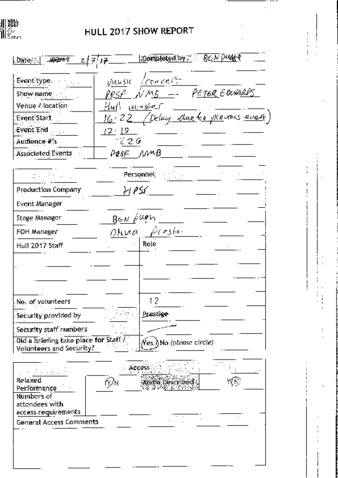 HULL 2017 SHOW REPORT
Date: 2/7/17 Completed by: BEN PUGH
Event type. music / concert
Show name PRSF NMB - PETER EDWARDS
Venue / location Hull minster
Event Start 16:22 (Delay due to previous event)
Event End 17:10
Audience #'s 220
Associated Events PRSF NMB
Personnel
Production Company HPSS
Event Manager
Stage Manager Ben Pugh
FOH Manager
Hull 2017 Staff Role
No. of volunteers 12
Security provided by Prestige
Security staff numbers
Did a briefing take place for Staff / Yes / No (please circle)
Volunteers and Security?
Access
Relaxed Y/N Audio Described Y/N
Performance
Numbers of
attendees with
access requirements
General Access Comments